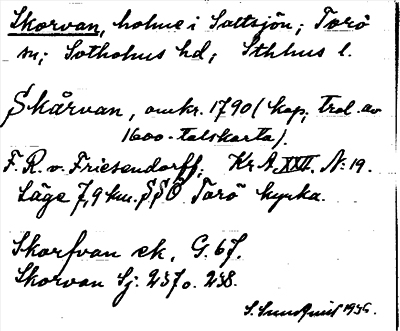 Skorvan, holme i Saltsjön; Torö
sn; Sotholms hd; Sthlms l.
Skårvan, omkr. 1790 (kop. trol. av
1600-talskarta).
F. R. v. Friesendorff; Kr A XXVI. N: 19.
Läge 7,9 km. SSÖ Torö kyrka.
Skorfvan ek. G. 67.
Skorvan Sj. 237 o. 238.
S. Sundqvist 1936.